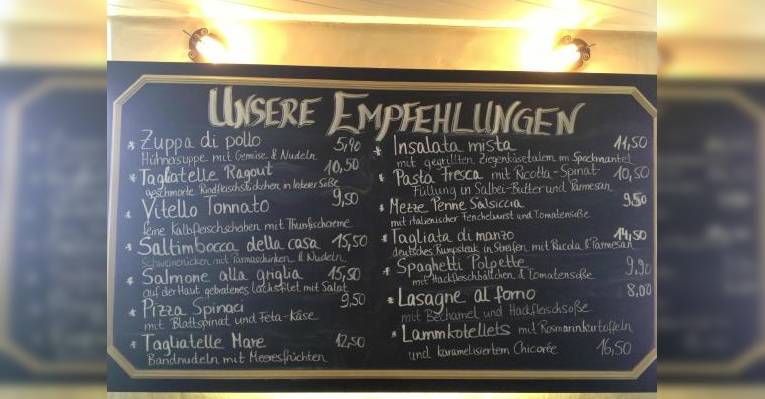 UNSERE EMPFEHLUNGEN
* Zuppa di pollo 5,90
Hühnersuppe mit Gemüse & Nudeln
* Tagliatelle Ragout 10,50
geschmorte Rindfleischstückchen in leckerer Soße
* Vitello Tonnato 9,50
feine Kalbfleischscheiben mit Thunfischcreme
* Saltimbocca della casa 15,50
Schweinerücken mit Parmaschinken & Nudeln
* Salmone alla griglia 15,50
auf der Haut gebratenes Lachsfilet mit Salat
* Pizza Spinaci 9,50
mit Blattspinat und Feta-Käse
* Tagliatelle Mare 12,50
Bandnudeln mit Meeresfrüchten
* Insalata mista 11,50
mit gegrillten Ziegenkäsetalern im Speckmantel
* Pasta Fresca mit Ricotta-Spinat- 10,50
Füllung in Salbei-Butter und Parmesan
* Mezze Penne Salsiccia 9,50
mit italienischer Fenchelwurst und Tomatensoße
* Tagliata di manzo 14,50
deutsches Rumpsteak in Streifen mit Rucola & Parmesan
* Spaghetti Polpette 9,90
mit Hackfleischbällchen & Tomatensoße
* Lasagne al forno 8,00
mit Bechamel und Hackfleischsoße
* Lammkotelletts mit Rosmarinkartoffeln
und karamelisiertem Chicorée 16,50